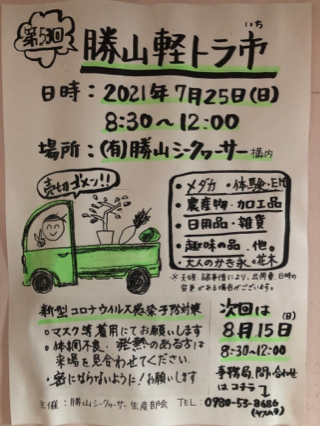 第53回
勝山軽トラ市
いち
日時:2021年7月25日(日)
8:30~12:00
場所:(有)勝山シークヮーサー構内
売切ゴメン!!
・メダカ ・体験・EM
・農産物・加工品
・日用品・雑貨
・趣味の品、他。
・大人のかき氷 ・花木
※天候、諸事情により、出荷者、日時の
変更がある場合がございます。
新型コロナウイルス感染予防対策
○マスク等着用にてお願いします
○体調不良、発熱のある方は
来場を見合わせてください。
○密にならないように!お願いします
次回は
8月15日(日)
8:30~12:00
事務局、問い合わせ
はコチラ
主催:勝山シークヮーサー生産部会 TEL:0980-53-8686